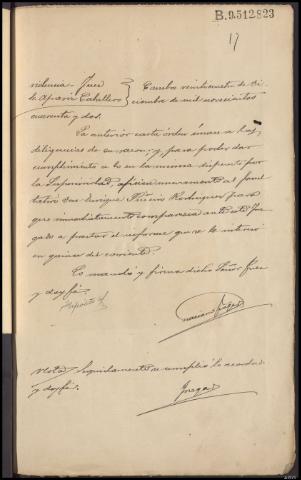 B.9.512,823
17
Providencia. Juez
Sr Aparici Caballero
Coruña veinticuatro de Di-
ciembre de mil novecientos
cuarenta y dos.
La anterior carta órden únase a las
diligencias de su razon: y para poder dar
cumplimiento a lo en la misma dispuesto por
la Superioridad, ofíciese nuevamente al facul-
tativo Don Enrique Rodriguez para
que inmediatamente comparezca ante este Juz-
gado a prestar el informe que se le interesó
en quince del corriente.
Lo mandó y firma dicho Señor Juez
y doy fé.
Nota/ Seguidamente se cumplió lo acordado
y doy fé.